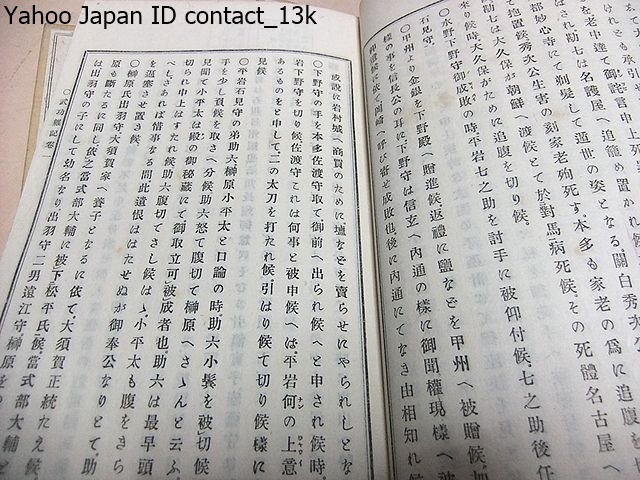 Yahoo Japan ID contact_13k
を老中達て御詫言申上
は都妙心寺にて剃髮して遁世の姿となる。關白秀次公
され勘七は名護屋へ追腹を切り候。本多も家老の爲に
て抱置候秀次公生害の刻家老殉死す。
勘七は大久保が朝鮮へ渡候とて於對馬病死候。その死體名古屋へ
來り候時大久保がために追腹を切り候。
○水野下野守御成敗の時平岩七之助を討手に被仰付候。七之助後任
石見守。
○甲州より金銀を下野殿へ贈進候。返禮に鹽などを甲州へ被贈候。
樣の事を信長公の耳に下野守は信玄へ內通の樣に御聞權現樣へ被
仰遣候に依て岡崎へ呼び寄せ成敗也後に內通にてなき由相知れ候
或說に岩村城へ商買のために鹽などを賣らせにやられしとな
○下野守の手を本多佐渡守取て御前へ出られ候へと申され候時。平
岩下野守を切り候佐渡守これは何事と被申候へば。平岩何の上意
あるものをと申して二の太刀を打たれ候引はり候て切り候樣に
見候
○平岩石見守の弟助六榊原小平太と口論の時助六小鬢を被切候
手を少し負候を取さへ分候助六怒て腹切て榊原へさゝんと云ふ。
見聞て小平太は殿の御秘藏にて御取立可被成者也。助六は最早頭
切られ申上はすたれ候助六腹切てさし候はゞ小平太も腹をきら
へし。されば惜事なる間此遺恨ははたせぬが御奉公なりとて。助
を返寒させ置き候。
○榊原氏出羽守大須賀家へ養子となるに依て大須賀正統たえ候
原も斷たるに同じ依之當式部大輔に被下松平氏候當式部大輔と
は出羽守の子にて幼名なり出羽守二男遠江守榊原を
○武功雜記卷一